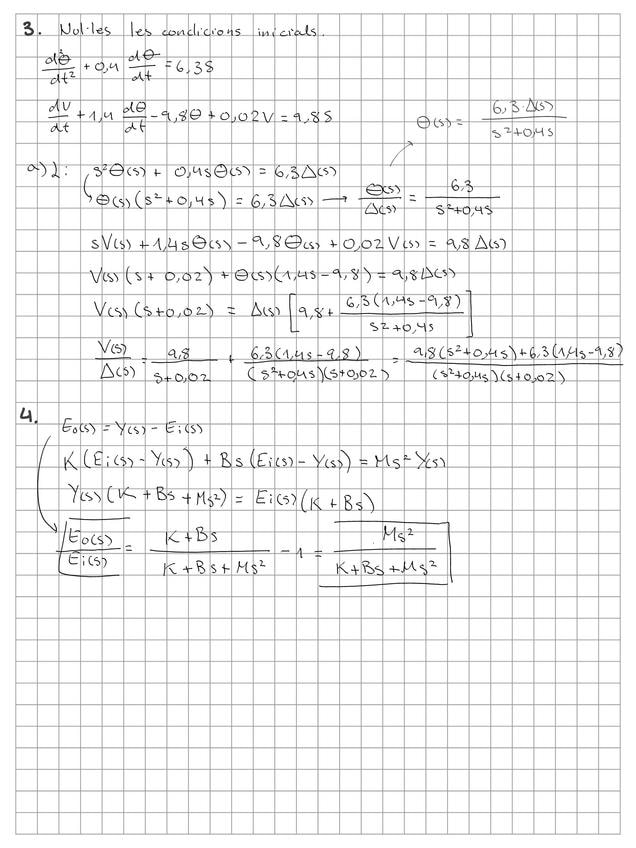 3. Nul·les les condicions inicials.
d²θ/dt² + 0,4 dθ/dt = 6,3δ
dv/dt + 1,4 dθ/dt - 9,8θ + 0,02V = 9,8δ
θ(s) = 6,3·Δ(s)/(s²+0,4s)
a) L: s²θ(s) + 0,4sθ(s) = 6,3Δ(s)
θ(s)(s²+0,4s) = 6,3Δ(s) → θ(s)/Δ(s) = 6,3/(s²+0,4s)
sV(s) + 1,4sθ(s) - 9,8θ(s) + 0,02V(s) = 9,8Δ(s)
V(s)(s+0,02) + θ(s)(1,4s-9,8) = 9,8Δ(s)
V(s)(s+0,02) = Δ(s)[9,8 + 6,3(1,4s-9,8)/(s²+0,4s)]
V(s)/Δ(s) = 9,8/(s+0,02) + 6,3(1,4s-9,8)/((s²+0,4s)(s+0,02)) = (9,8(s²+0,4s)+6,3(1,4s-9,8))/((s²+0,4s)(s+0,02))
4.
E₀(s) = Y(s) - Ei(s)
K(Ei(s) - Y(s)) + Bs(Ei(s) - Y(s)) = Ms²Y(s)
Y(s)(K + Bs + Ms²) = Ei(s)(K + Bs)
E₀(s)/Ei(s) = (K+Bs)/(K+Bs+Ms²) - 1 = Ms²/(K+Bs+Ms²)